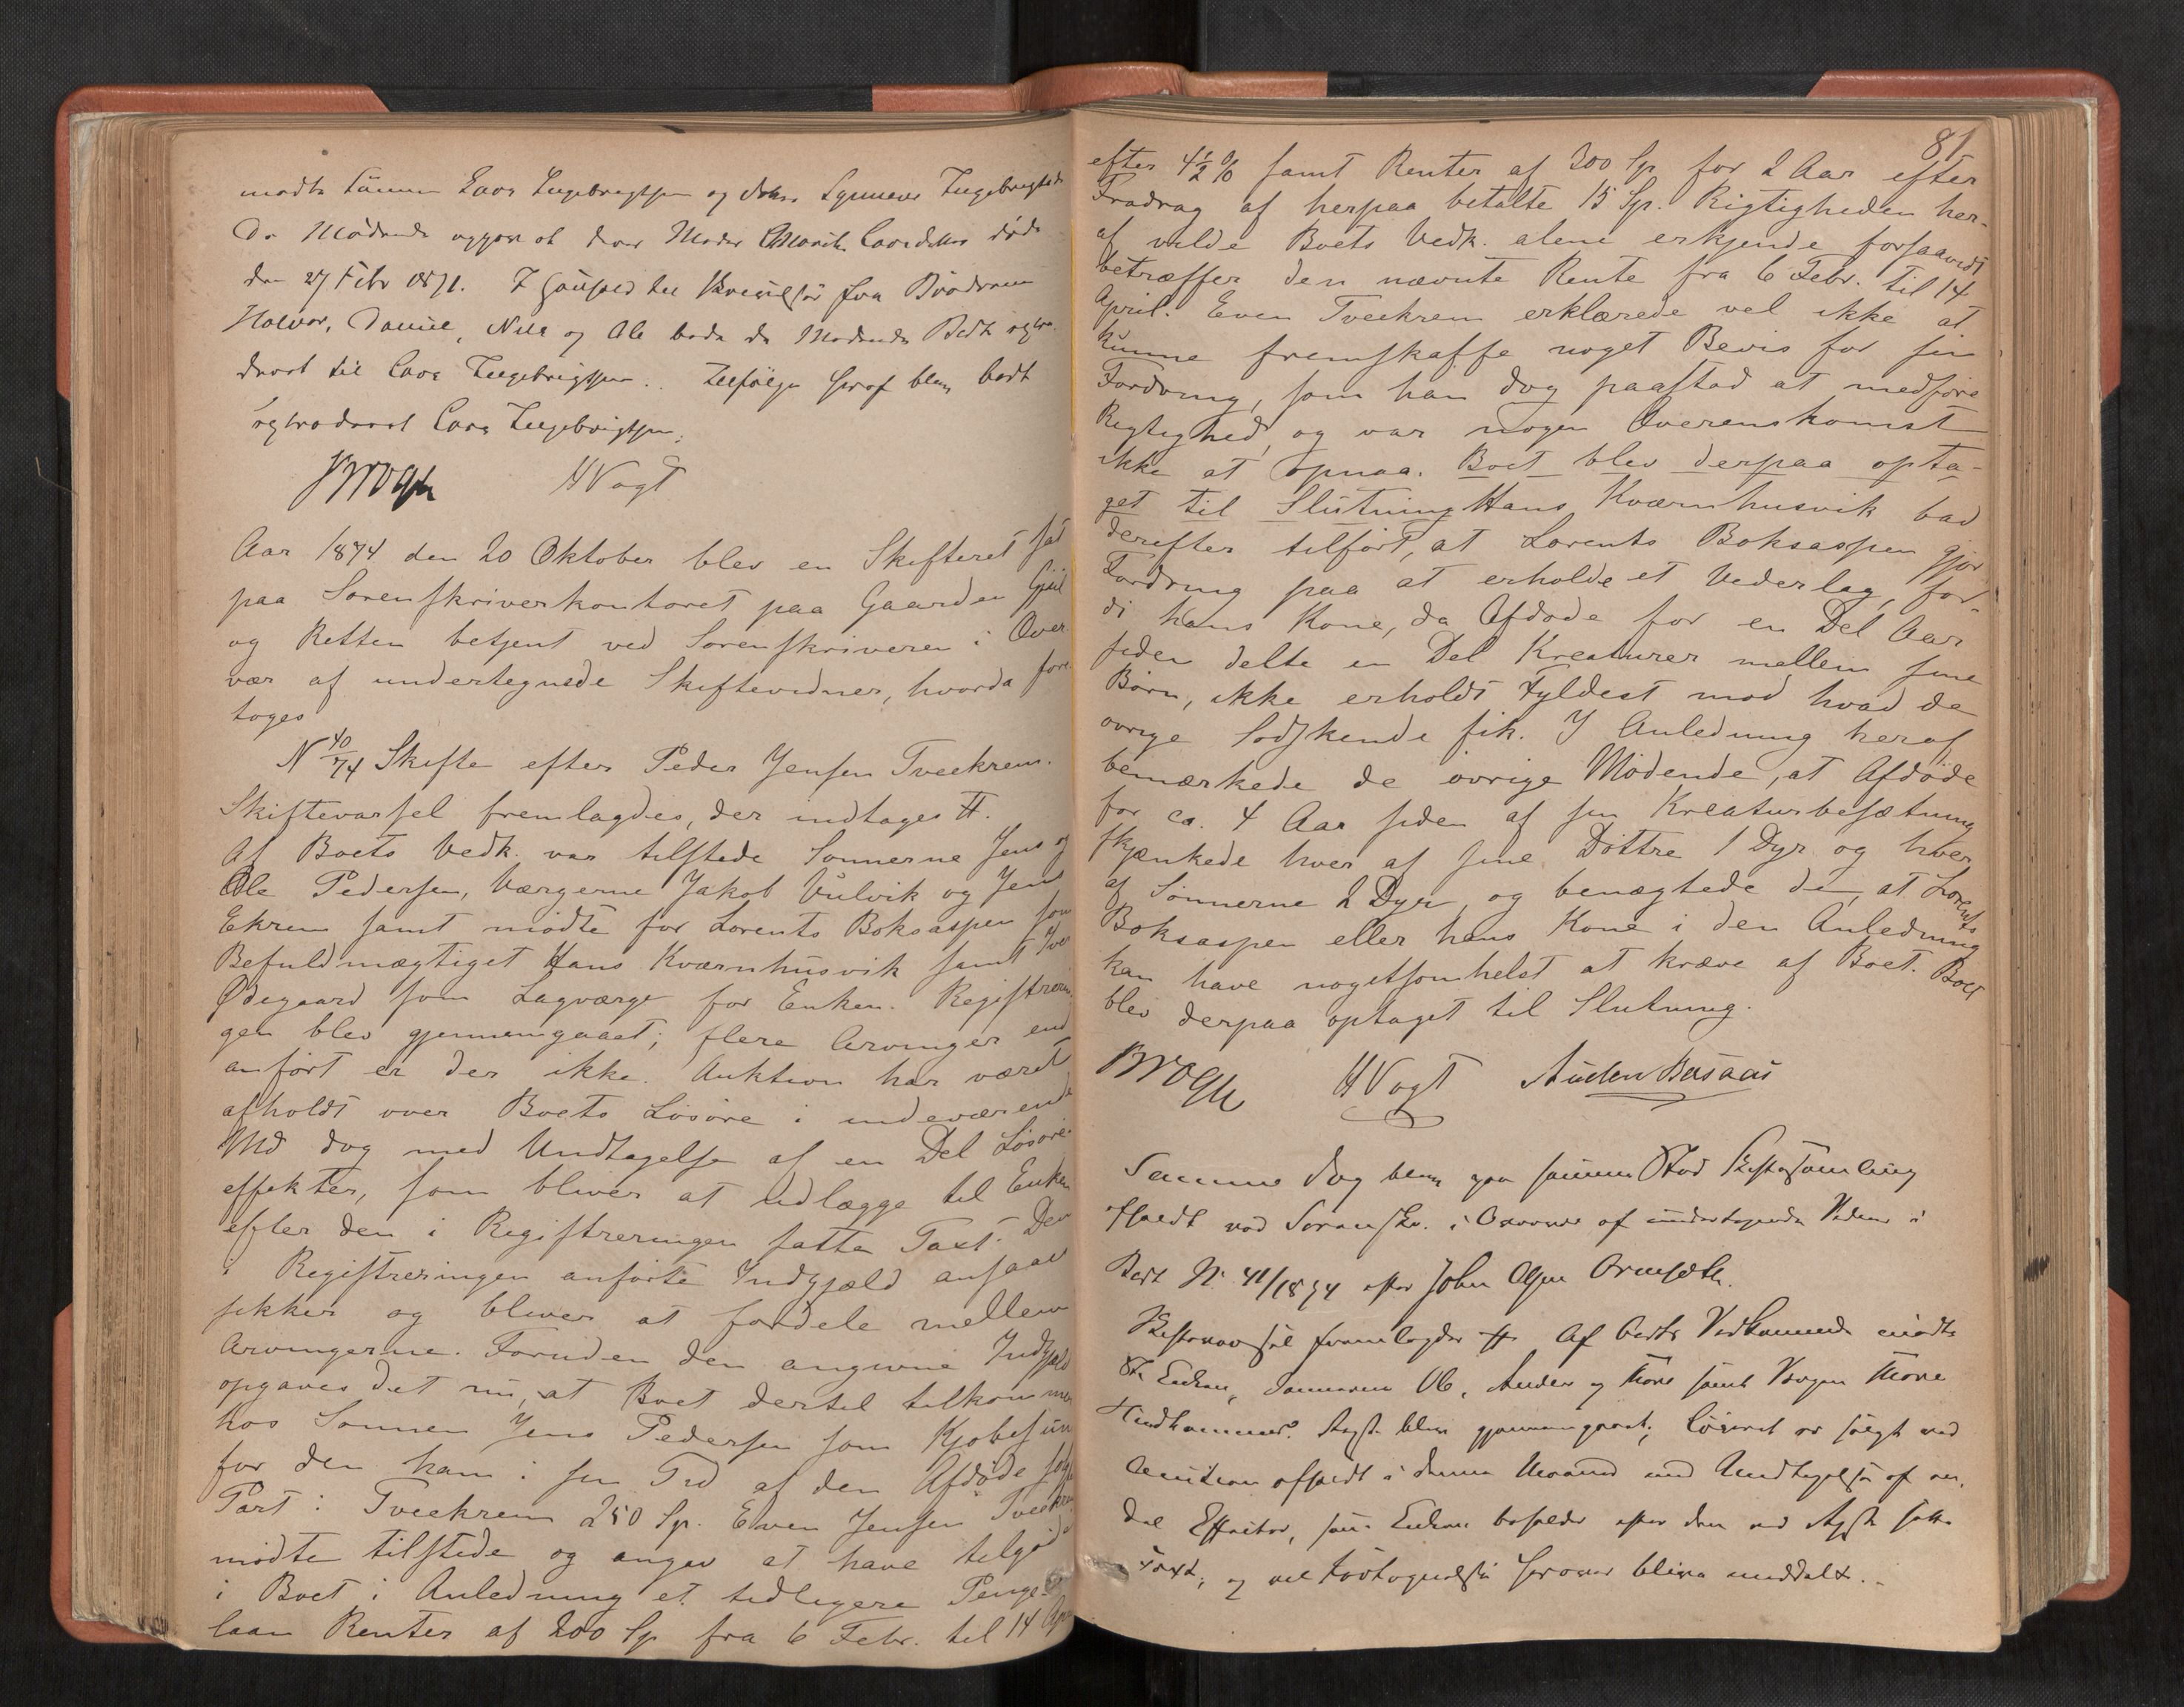 mødte Sønnen Lars Ingebrigtsen og Ingebrigtsd.
De Mødende opgav at deres Moder Marit Larsdatter døde
den 27 Febr 1871. I Henhold til fra Brødrene
Halvor, Daniel, Nils og Ole bade de Mødende Boet extra
deret til Lars Ingebrigtsen. Ifølge heraf blev Boet
extraderet Lars Ingebrigtsen.
Brogh HVogt
Aar 1874 den 20 Oktober blev en Skifteret sat
paa Sorenskriverkontoret paa Gaarden Gjül
og Retten betjent ved Sorenskriveren i Over-
vær af undertegnede Skiftevidner, hvorda fore-
toges
N 40/74 Skifte efter Peder Jensen Tveekrem.
Skiftevarsel fremlagdes, der indtages #.
Af Boets Vedk. var tilstede Sønnerne Jens og
Ole Pedersen, Værgerne Jakob Vulvik og Jens
Ekrem samt mødte for Lorents Boksaspen som
Befuldmægtiget Hans Kværnhusvik samt Iver
Ødegaard som Lagværge for Enken. Registrerin-
gen blev gjennemgaaet; flere Arvinger end
anført er der ikke. Auktion har været
afholdt over Boets Løsøre i indeværende
Md dog med Undtagelse af en Del Løsøre-
effekter, som bliver at udlægge til Enken
efter den i Registreringen satte Taxt. Den
i Registreringen anførte Indgjæld ansaaes
sikker og bliver at fordele mellem
Arvingerne. Foruden den angivne Indgjæld
opgaves det nu, at Boet dertil tilkommer
hos Sønnen Jens Pedersen som Kjøbesum
for den ham i sin Tid af den Afdøde solgte
Part i Tveekrem 250 Sp. Even Jensen Tveekrem
mødte tilstede og angav at have tilgode
i Boet i Anledning et tidligere Penge-
laan Renter af 200 Sp fra 6 Febr. til 14 Apr
81
efter 4 1/2 % samt Renter af 300 Sp for 2 Aar efter
Fradrag af herpaa betalte 15 Sp. Rigtigheden her-
af vilde Boets Vedk. alene erkjende forsaavidt
betræffer den nævnte Rente fra 6 Febr. til 14
April. Even Tveekrem erklærede vel ikke at
kunne fremskaffe noget Bevis for sin
Fordring, som han dog paastod at medføre
Rigtighed, og var nogen Overenskomst
ikke at opnaa. Boet blev derpaa opta-
get til Slutning Hans Kværnhusvik bad
derefter tilført, at Lorents Boksaspen gjør
Fordring paa at erholde et Vederlag, for-
di hans Kone, da Afdøde for en Del Aar
siden delte en Del Kreaturer mellem sine
Børn, ikke erholdt Fyldest mod hvad de
øvrige Sødskende fik. I Anledning heraf
bemærkede de øvrige Mødende, at Afdøde
for ca. 4 Aar siden af sin Kreaturbesætning
skjænkede hver af sine Døttre 1 Dyr og hver
af Sønnerne 2 Dyr, og benægtede de, at Lorents
Boksaspen eller hans Kone i den Anledning
kan have nogetsomhelst at kræve af Boet. Boet
blev derpaa optaget til Slutning.
Brogh HVogt Auden Busaas
Samme Dag blev paa samme Sted Skiftesamling
afholdt ved Sorenskr. i Overvær af undertegnede Vidner i
Boet N. 41/1874 efter John Olsen Ormsæth.
Skiftevarsel fremlagdes #. Af Boets Vedkommende mødte
Enken, Sønnerne Ole, Anders og Thore samt Værgen Thore
Hindhammer. Regst. blev gjennemgaaet; Løsøret er solgt ved
Auktion afholdt i denne Maaned med Undtagelse af en
Del Effekter, som Enken beholder efter den ved Regst. satte
Taxt, og vil Fortegnelse herover blive meddelt.